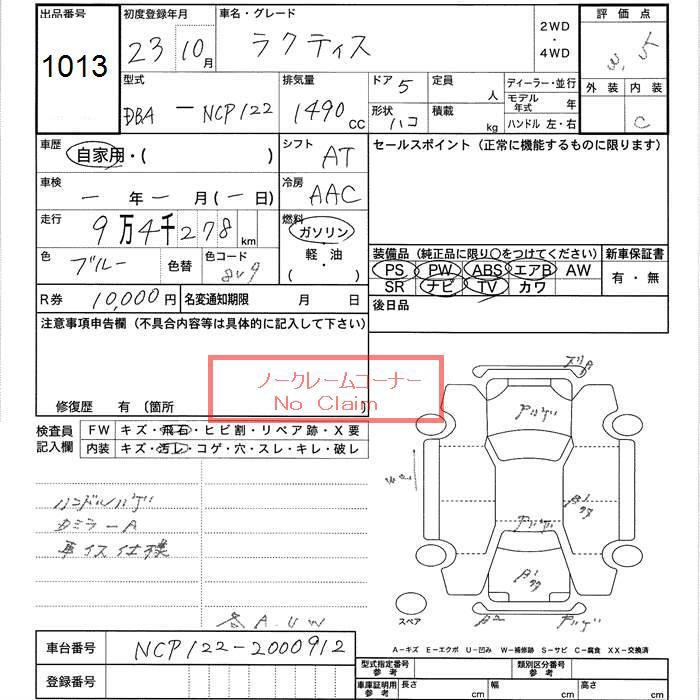 出品番号 初度登録年月 車名・グレード 2WD ・ 4WD 評価点
1013 23 10月 ラクティス 3.5
型式 排気量 ドア 5 定員 人 ディーラー・並行 外装 内装
DBA － NCP122 1490 CC 形状 ハコ 積載 kg モデル年式 年
ハンドル 左・右 C
車歴 自家用・( ) シフト AT セールスポイント（正常に機能するものに限ります）
車検 － 年 － 月（－日） 冷房 AAC
走行 9万4千278 km 燃料 ガソリン・軽油・( )
色 ブルー 色替 色コード 8V9
装備品（純正品に限り○をつけてください） 新車保証書
PS PW ABS エアB AW 有・無
SR ナビ TV カワ
R券 10,000円 名変通知期限 月 日 後日品
注意事項申告欄（不具合内容等は具体的に記入して下さい）
ノークレームコーナー
No Claim
修復歴 有（箇所 ）
検査員記入欄 FW キズ・飛石・ヒビ割・リペア跡・X要
内装 キズ・汚レ・コゲ・穴・スレ・キレ・破レ
ハンドルハゲ
車イス仕様
各A.U W
スペア
A－キズ E－エクボ U－凹み W－補修跡 S－サビ C－腐食 XX－交換済
車台番号 NCP122-2000912
登録番号
型式指定番号 参考 類別区分番号 参考
車庫証明用 参考 長さ cm 幅 cm 高さ cm